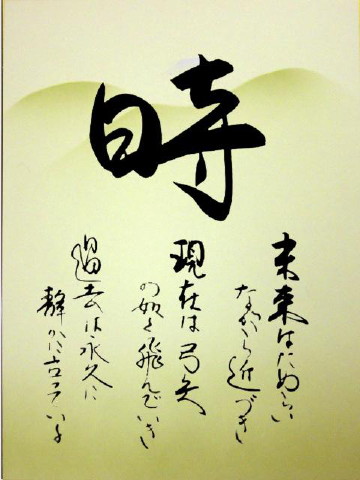 時
未来はためらい
ながら近づき
現在は弓矢
の如く飛んでいき
過去は永久に
静かに立っている